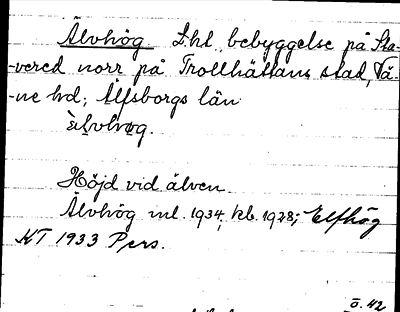 Älvhög L.ht, bebyggelse på Sta-
-vered norr på Trollhättans stad, Vä-
-ne hd; Älfsborgs län
Höjd vid älven.
Älvhög ml. 1934, kb. 1928; Elfhög
KT 1933 Pers.
Ö. 42